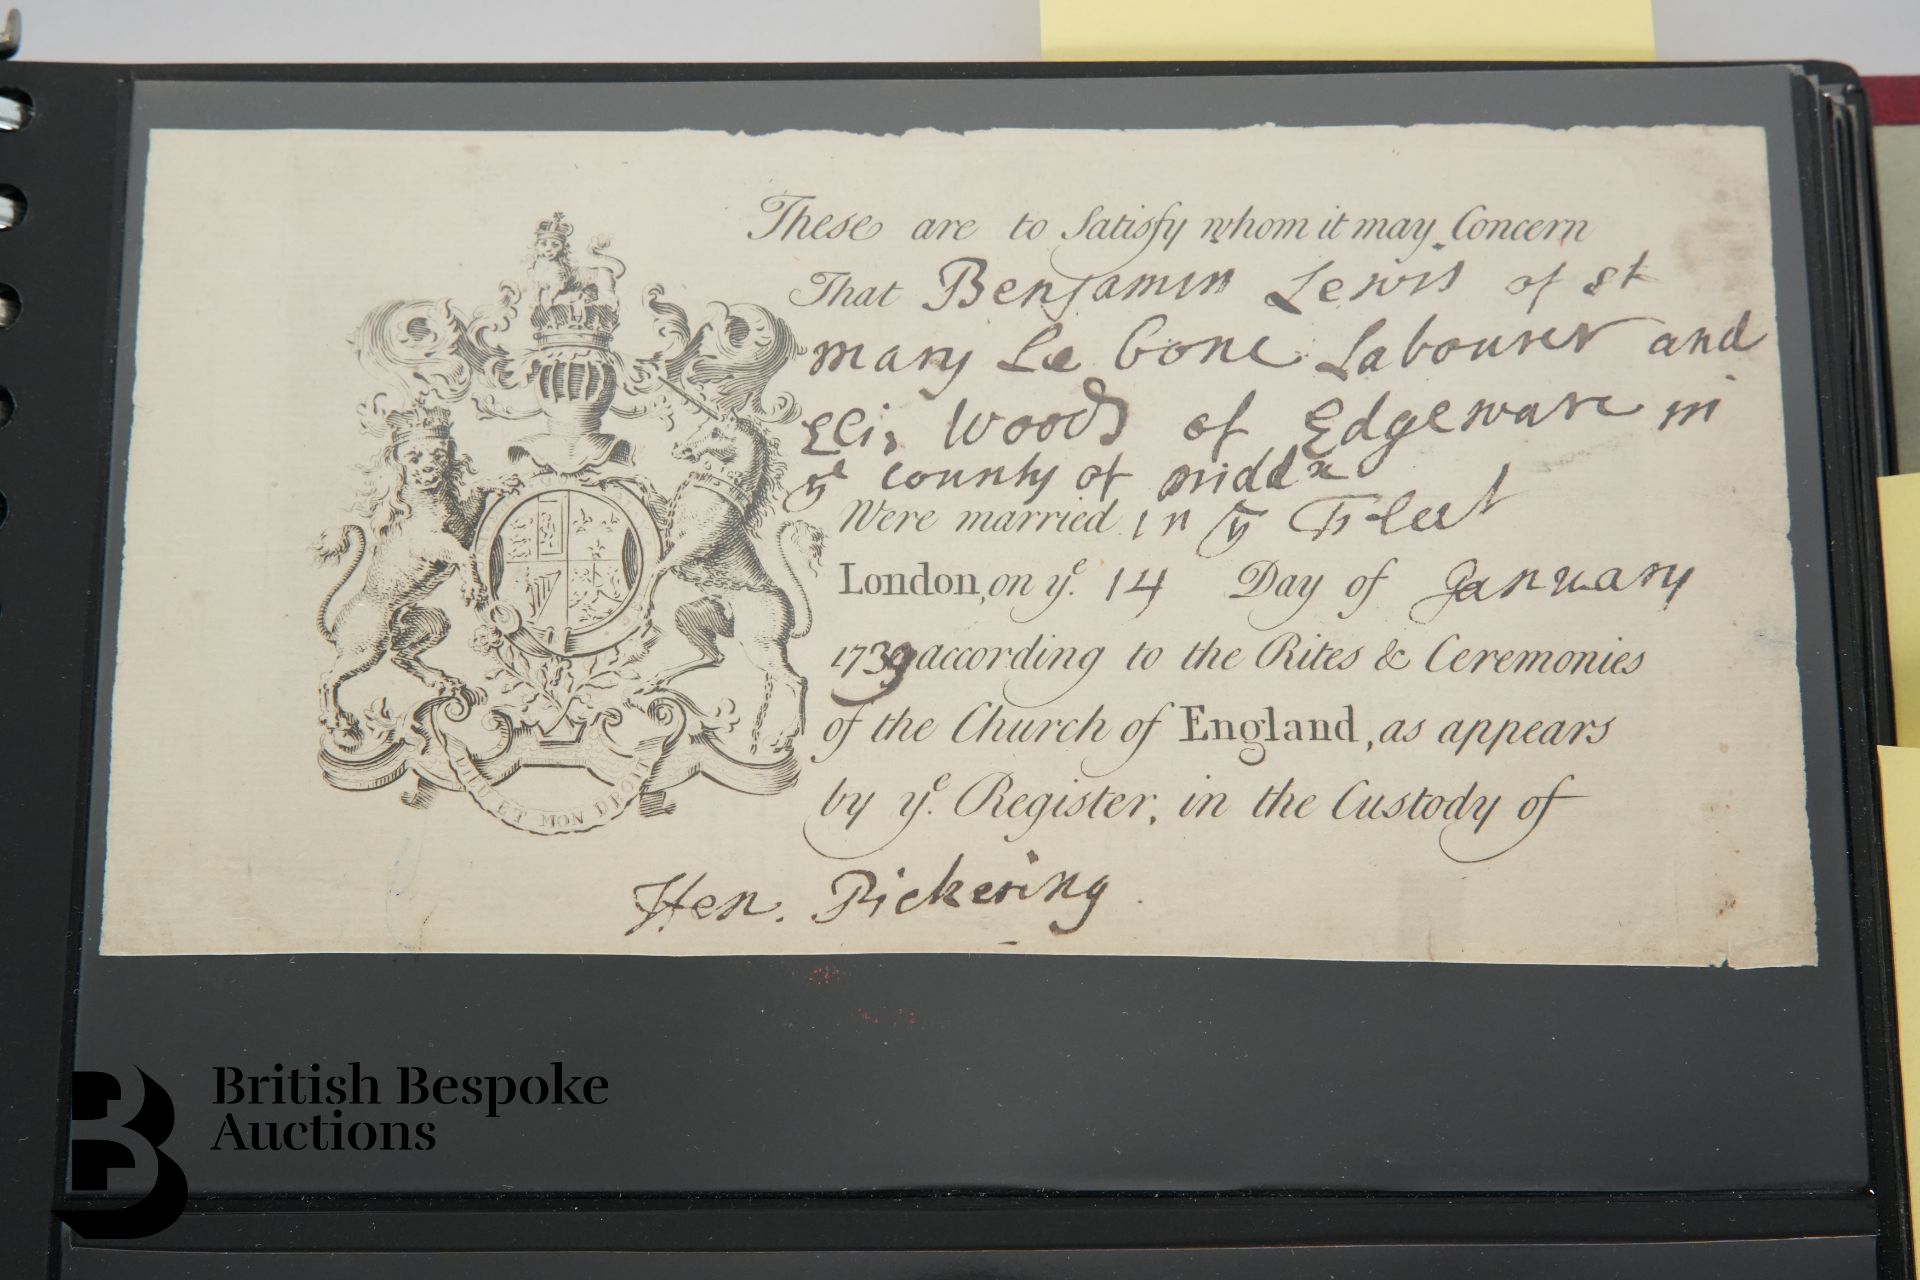 These are to Satisfy whom it may Concern
That Benjamin Lewis of St
mary Le bone Labourer and
Eliz Woods of Edgeware in
ye county of middx
Were married in ye Fleet
London, on ye. 14 Day of January
1739 according to the Rites & Ceremonies
of the Church of England, as appears
by ye. Register, in the Custody of
Hen. Pickering
DIEU ET MON DROIT
British Bespoke
Auctions